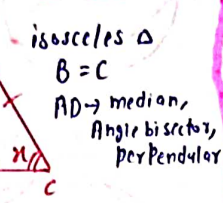 isosceles Δ
B = C
AD→ median,
Angle bisector,
perpendular
x
C